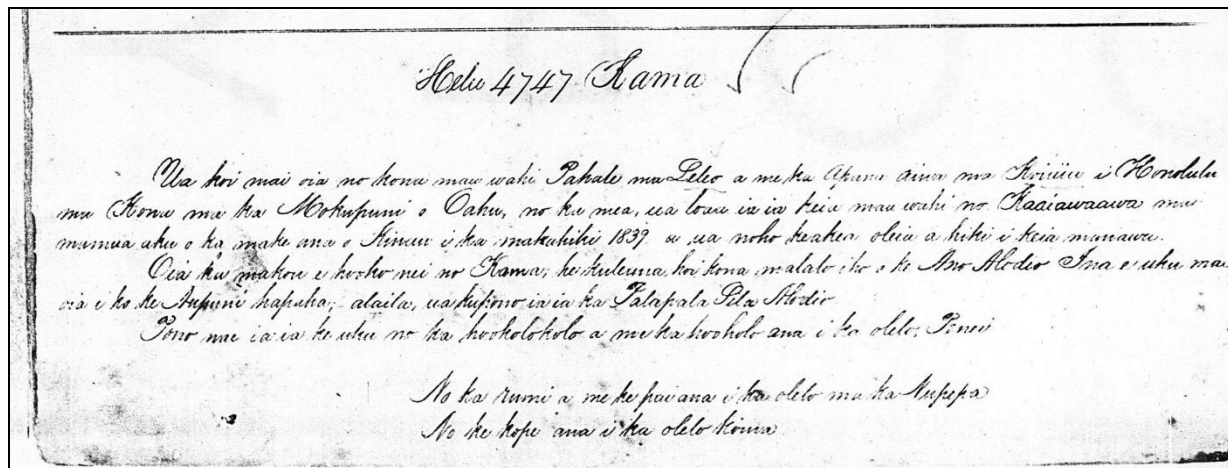 Helu 4747 Kama
Ua koi mai oia no kona mau wahi Pahale ma Peleo a me ka Apana aina ma Koiuiu i Honolulu
ma Kona ma ka Mokupuni o Oahu, no ka mea, ua loaa ia ia keia mau wahi no Kaaiawaawa ma
mamua aku o ka make ana o Kinau i ka makahiki 1839 a ua noho keakea oleia a hiki i keia manawa.
Oia ka makou e hooho nei no Kama, he kuleana koi kona malalo iho o ke Ano Alodio Ina e uku mai
oia i ko ke Aupuni hapaha,- alaila, ua kupono ia ia ka Palapala Sila Alodio.
Pono nae ia ia ke uku no ka hookolokolo a me ka hooholo ana i ka olelo, Penei
No ka rumi a me ke pai ana i ka olelo ma ka Nupepa
No ke kope ana i ka olelo koina